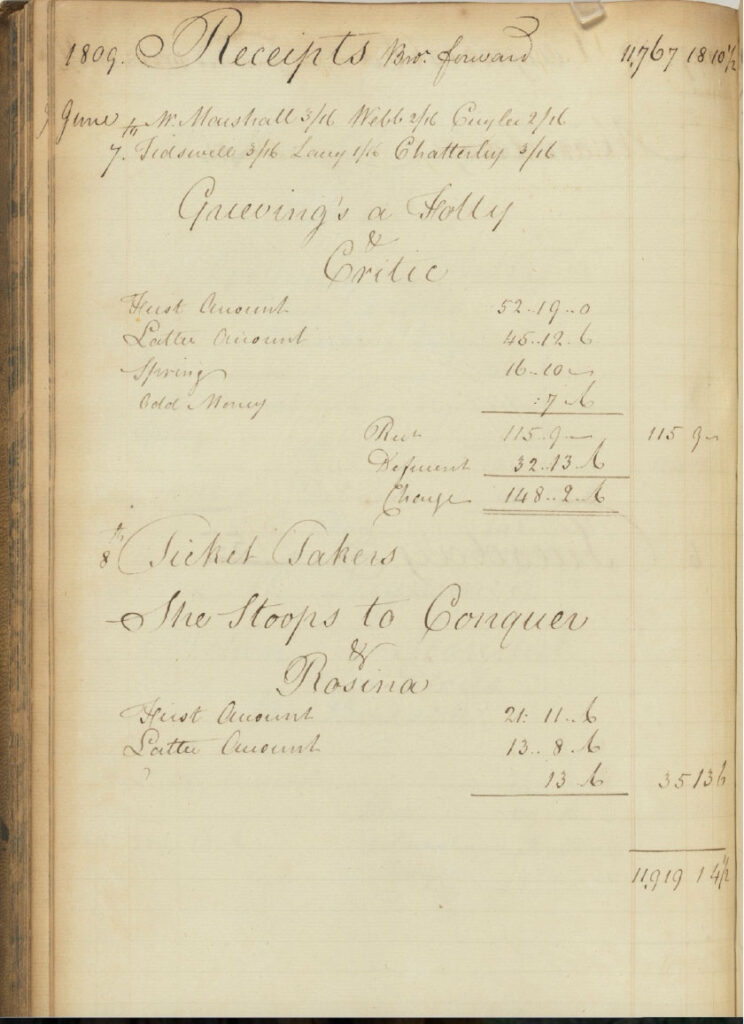 1809. Receipts Bro.t forward 11,767 18 10 1/2
June 7th W. Marshall 3/16 Webb 2/16 Cuyler 2/16
Tidswell 3/16 Lany 1/16 Chatterley 3/16
Grieving's a Folly
&
Critic
First Amount 52..19..0
Latter Amount 45..12..6
Spring 16..10..–
Odd Money :7..6
Rect 115..9..– 115 9 –
Deficient 32..13..6
Charge 148..2..6
8th Ticket Takers
She Stoops to Conquer
&
Rosina
First Amount 21: 11..6
Latter Amount 13..8..6
13..6 35 13 6
11,919 1 4 1/2